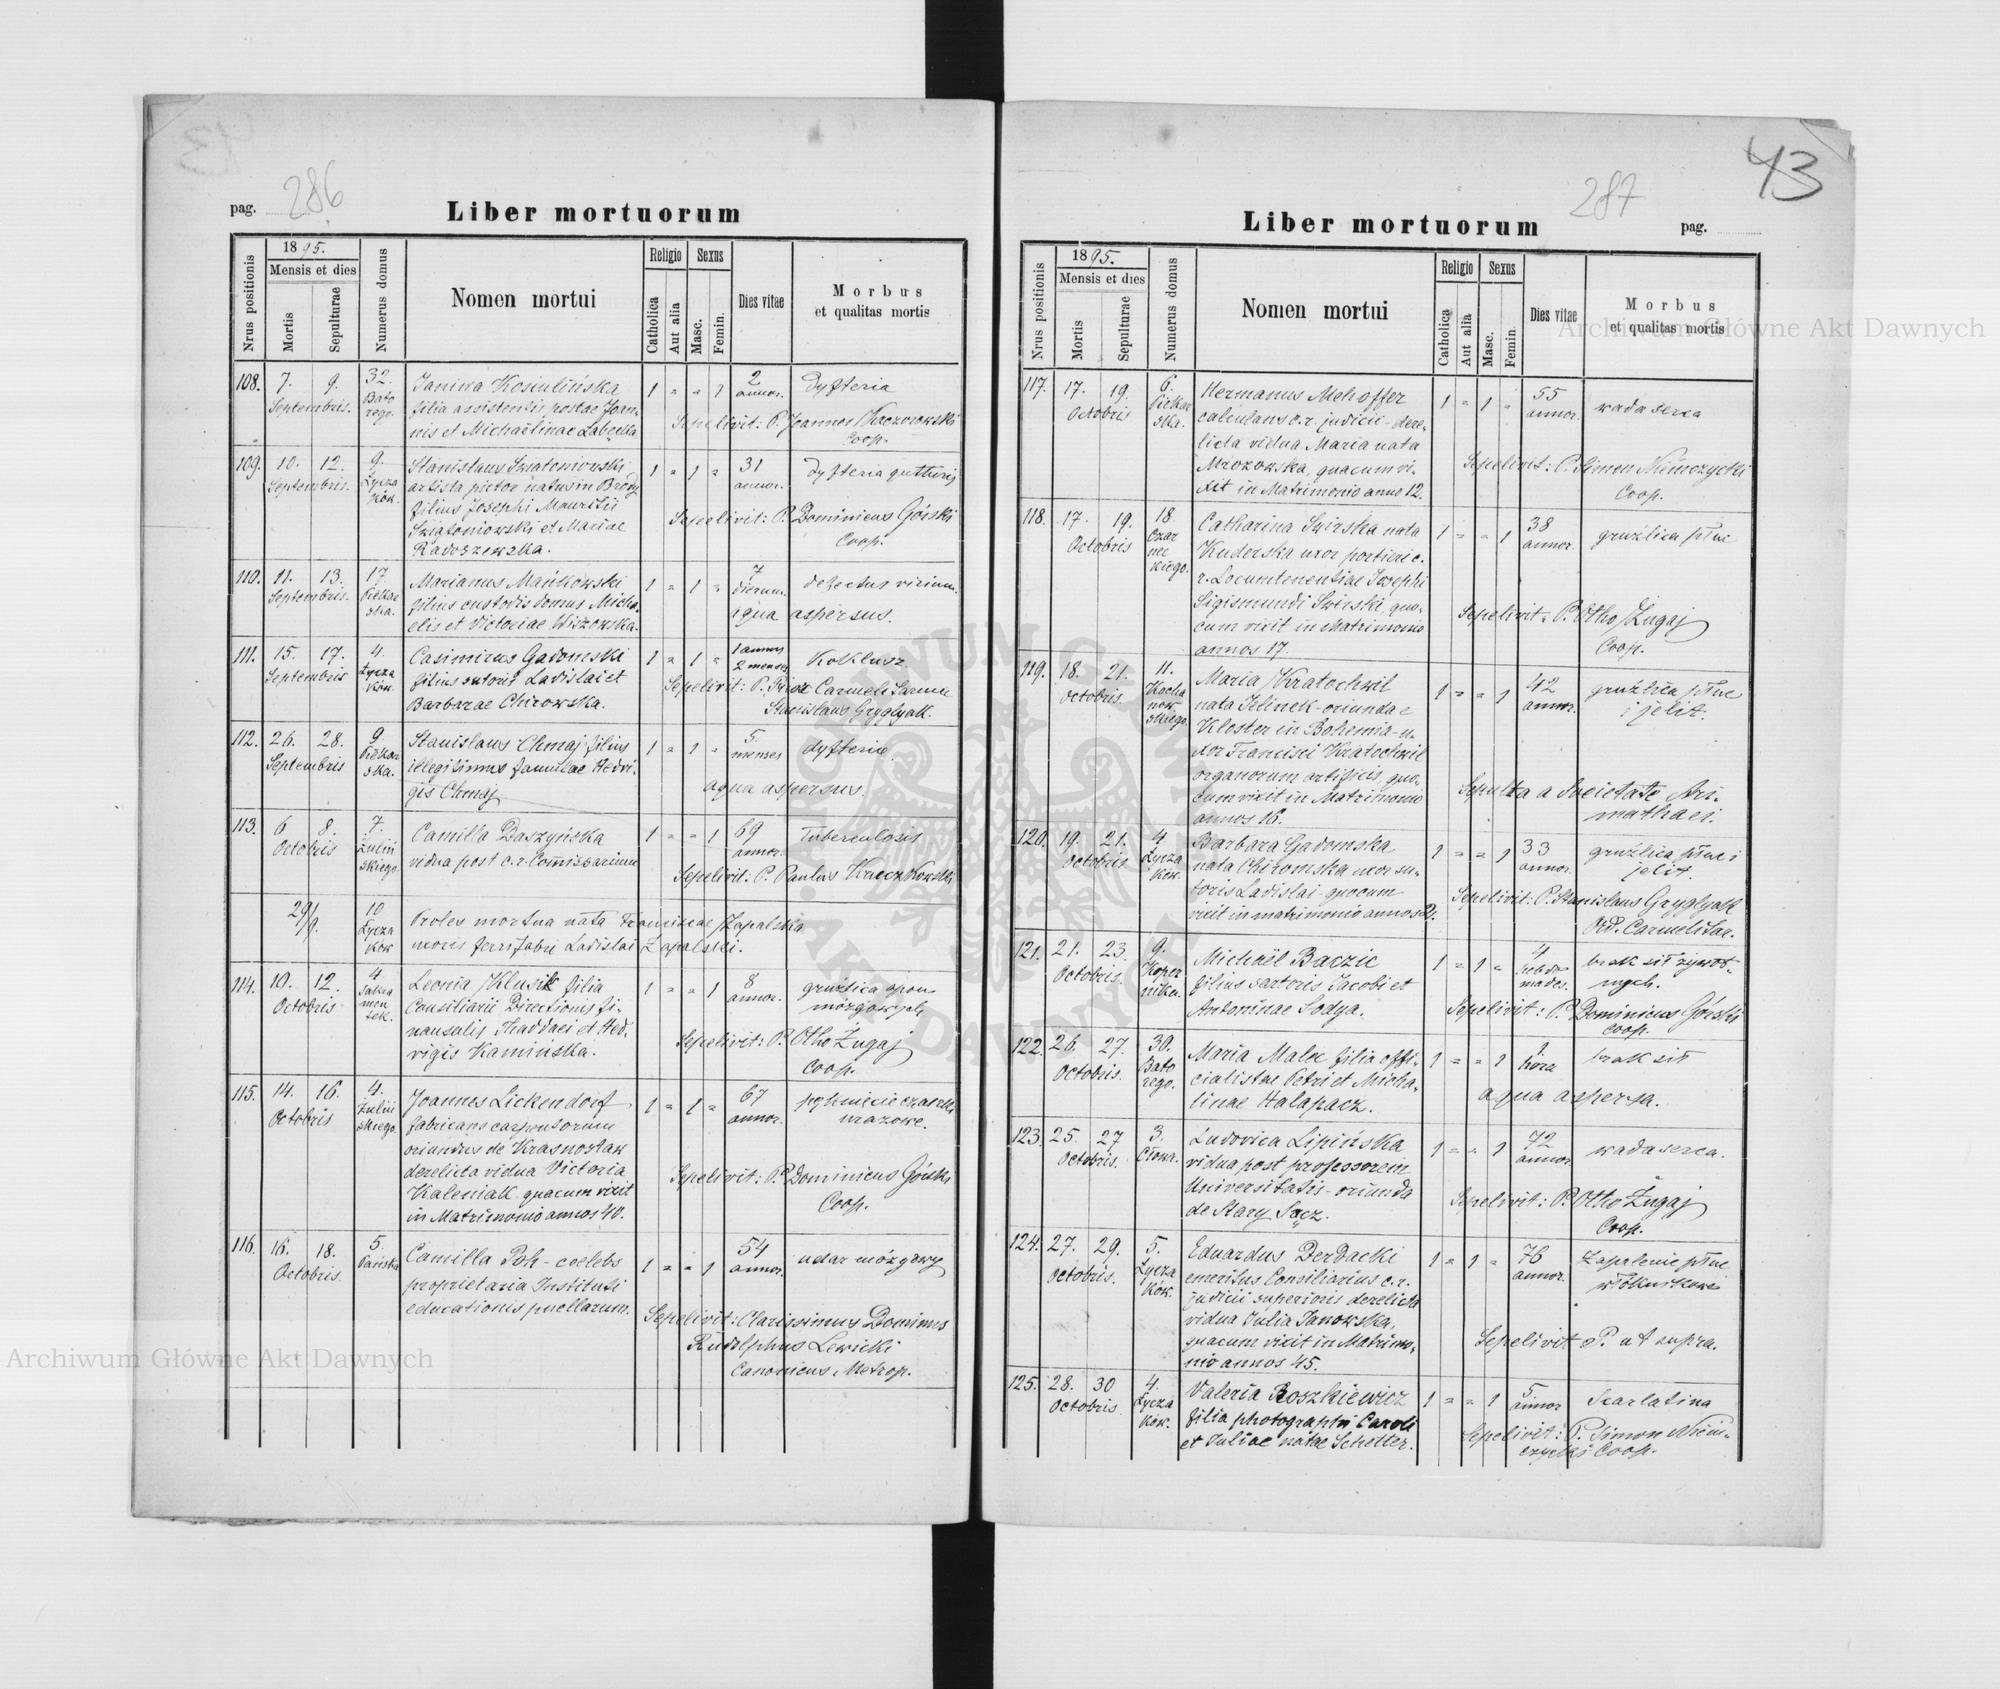 43
pag. 286
Liber mortuorum
Nrus positionis
1895.
Mensis et dies
Mortis
Sepulturae
Numerus domus
Nomen mortui
Religio
Catholica
Aut alia
Sexus
Masc.
Femin.
Dies vitae
Morbus
et qualitas mortis
108. 7. 9. 32. Janina 1 " " 1 2 Dyfteria
Septembris. Bato filia assistentis postae Joan- annor.
rego. nis et Michaëlinae Łabęcka Sepelivit: P. Joannes Kaczorowski
Coop.
109. 10. 12. 9. Stanislaus Swiatoniowski 1 " 1 " 31 dyfteria gutturis
Septembris. Łycza artista pictor natus in Brody annor.
ków. filius Josephi Mauritii Sepelivit: P. Dominicus Górski
Swiątoniowski et Mariae Coop.
Radoszewska.
110. 11. 13. 17. Marianus Mańkowski 1 " 1 " 7 defectus virium.
Septembris. Piekar filius custodis domus Micha- dierum.
ska. elis et Victoriae Wiszowska. aqua aspersus.
111. 15. 17. 4. Casimirus Gadomski 1 " 1 " 1 annus Koklusz
Septembris Łycza filius sutoris Ladislai et 2 menses
ków. Barbarae Chirowska. Sepelivit: P.
Stanislaus Gryglyak.
112. 26. 28. 9. Stanislaus Chmaj filius 1 " 1 " 5. dyfteria
Septembris Piekar illegitimus famulae Hedvi- menses
ska. gis Chmaj aqua aspersus.
113. 6 8. 7. Camilla Daszyńska 1 " " 1 69 Tuberculosis
Octobris Zuliń vidua post c. r. Comissarium annor.
skiego Sepelivit: P. Paulus
29/9. 10 Proles mortua nata Franciscae Zapalska
Łycza uxoris ferri fabri Ladislai Zapalski.
ków
114. 10. 12. 4 Leonia Klusik filia 1 " " 1 8 gruźlica opon
Octobris Sakra Consiliarii Directionis fi- annor. mózgowych
men nansalis Thaddaei et Hed- Sepelivit: P. Otho Żugaj
tek. vigis Kamińska. Coop.
115. 14. 16. 4. Joannes Lickendorf 1 " 1 " 67
Octobris Zuliń fabricans carpentorum annor.
skiego. oriundus de Krasnostaw
derelicta vidua Victoria Sepelivit: P. Dominicus Górski
Kaleniak quacum vixit Coop.
in Matrimonio annos 40.
116. 16. 18. 5. Camilla Poh - coelebs 1 " " 1 54 udar mózgowy
Octobris. Pańska proprietaria Instituti annor.
educationis puellarum. Sepelivit: Clarissimus Dominus
Rudolphus Lewicki
Canonicus Metrop.
43
287
Liber mortuorum
pag.
Nrus positionis
1895.
Mensis et dies
Mortis
Sepulturae
Numerus domus
Nomen mortui
Religio
Catholica
Aut alia
Sexus
Masc.
Femin.
Dies vitae
Morbus
et qualitas mortis
117. 17. 19. 6. Hermanus Mehoffer 1 " 1 " 55 wada serca
Octobris Piekar calculans c. r. judicii - dere- annor.
ska. licta vidua Maria nata
Mrozowska, quacum vi- Sepelivit: P. Simon Niemczycki
xit in Matrimonio annos 12. Coop.
118. 17. 19. 18. Catharina Swirska nata 1 " " 1 38 gruźlica płuc
Octobris Czar Kuderska uxor portieri c. annor.
nec r. Locumtenentiae Josephi
kiego. Sigismundi Swirski, quo- Sepelivit: P. Otho Żugaj
cum vixit in Matrimonio Coop.
annos 17.
119. 18. 21. 11. Maria Kratochwil 1 " " 1 42 gruźlica płuc
Octobris. Kocha nata Jelinek - oriunda e annor. i jelit.
now Kloster in Bohemia - u-
skiego. xor Francisci Kratochwil
organorum artificis, quo- Sepulta a Societate Ari-
cum vixit in Matrimonio mathaei.
annos 16.
120. 19. 21. 4 Barbara Gadomska 1 " " 1 33 gruźlica płuc i
Octobris Łycza nata Chiromska uxor su- annor. jelit.
ków. toris Ladislai quocum Sepelivit: P. Stanislaus Gryglyak
vixit in matrimonio annos Ord. Carmelitar.
121. 21. 23. 9. Michaël Baczic 1 " 1 " 4 brak sił żywot-
Octobris. Koper filius sartoris Jacobi et hebdo nych.
nika. Antoninae Sodya. mades. Sepelivit: P. Dominicus Górski
Coop.
122. 26. 27. 30. Maria Malec filia offi- 1 " " 1 1 brak sił
Octobris. Bato cialistae Petri et Micha- hora
rego. linae Halapacz. aqua aspersa.
123. 25. 27 3. Ludovica Lipińska 1 " " 1 72 wada serca.
Octobris. Cłowa. vidua post professorem annor.
Universitatis - oriunda Sepelivit: P. Otho Żugaj
de Stary Sącz. Coop.
124. 27. 29. 5. Eduardus Derdacki 1 " 1 " 76 Zapalenie płuc
Octobris. Łycza emeritus Consiliarius c. r. annor. włóknikowe
ków. judicii superioris derelicta
vidua Julia Janowska, Sepelivit P. ut supra.
quacum vixit in Matrimo-
nio annos 45.
125. 28. 30 4. Valeria Roszkiewicz 1 " " 1 5. Scarlatina
Octobris Łycza filia photographi Caroli annor
ków. et Juliae natae Schotter. Sepelivit: P. Simon Niem-
czycki Coop.
Archiwum Główne Akt Dawnych
Archiwum Główne Akt Dawnych